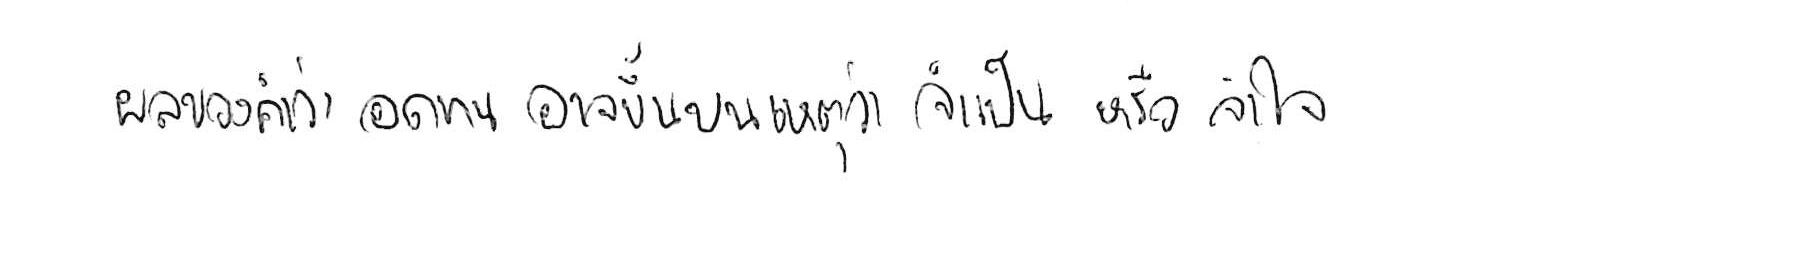 ผลของคำว่า อดทน อาจขึ้นบนเหตุว่า จำเป็น หรือ จำใจ